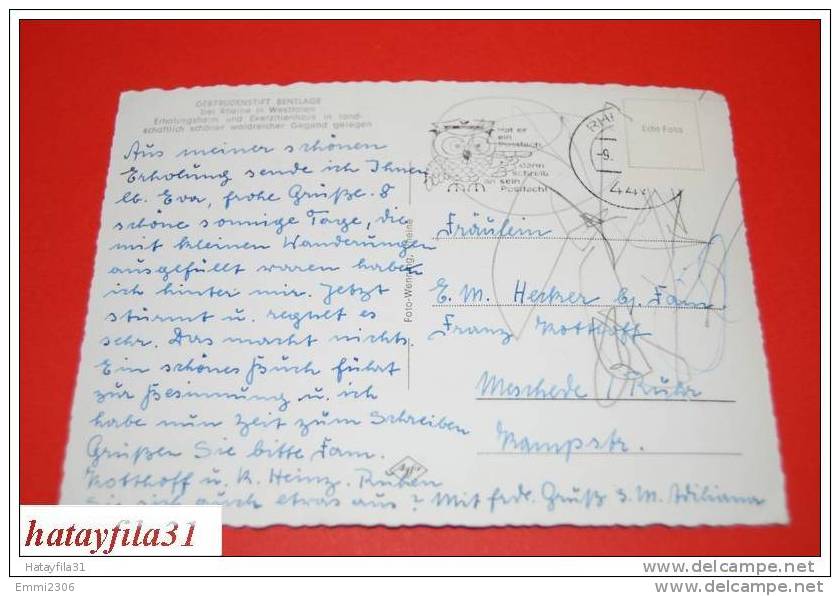 GERTRUDENSTIFT BENTLAGE
bei Rheine in Westfalen
Erholungsheim und Exerzitienhaus in land-
schaftlich schöner waldreicher Gegend gelegen
Aus meiner schönen
Erholung sende ich Ihnen
lb. Eva, frohe Grüße. 8
schöne sonnige Tage, die
mit kleinen Wanderungen
ausgefüllt waren haben
ich hinter mir. Jetzt
stürmt u. regnet es
sehr. Das macht nichts.
Ein schönes Buch führt
zur Besinnung u. ich
habe nun Zeit zum Schreiben
Grüßen Sie bitte Fam.
Kotthoff u. K. Heinz. Ruhen
Sie sich auch etwas aus? Mit frdl. Gruß S. M. Wiliana
Foto-Wenning, Rheine
Agfa
Hat er
ein
Postfach
dann
schreib
an sein
Postfach!
RHE
-9.
444
Echt Foto
Fräulein
E. M. Hecker bj. Fam.
Franz Kotthoff
Meschede / Ruhr
Kampstr.
hatayfila31
Hatayfila31
Emmi2306
www.delcampe.net
www.delcampe.net